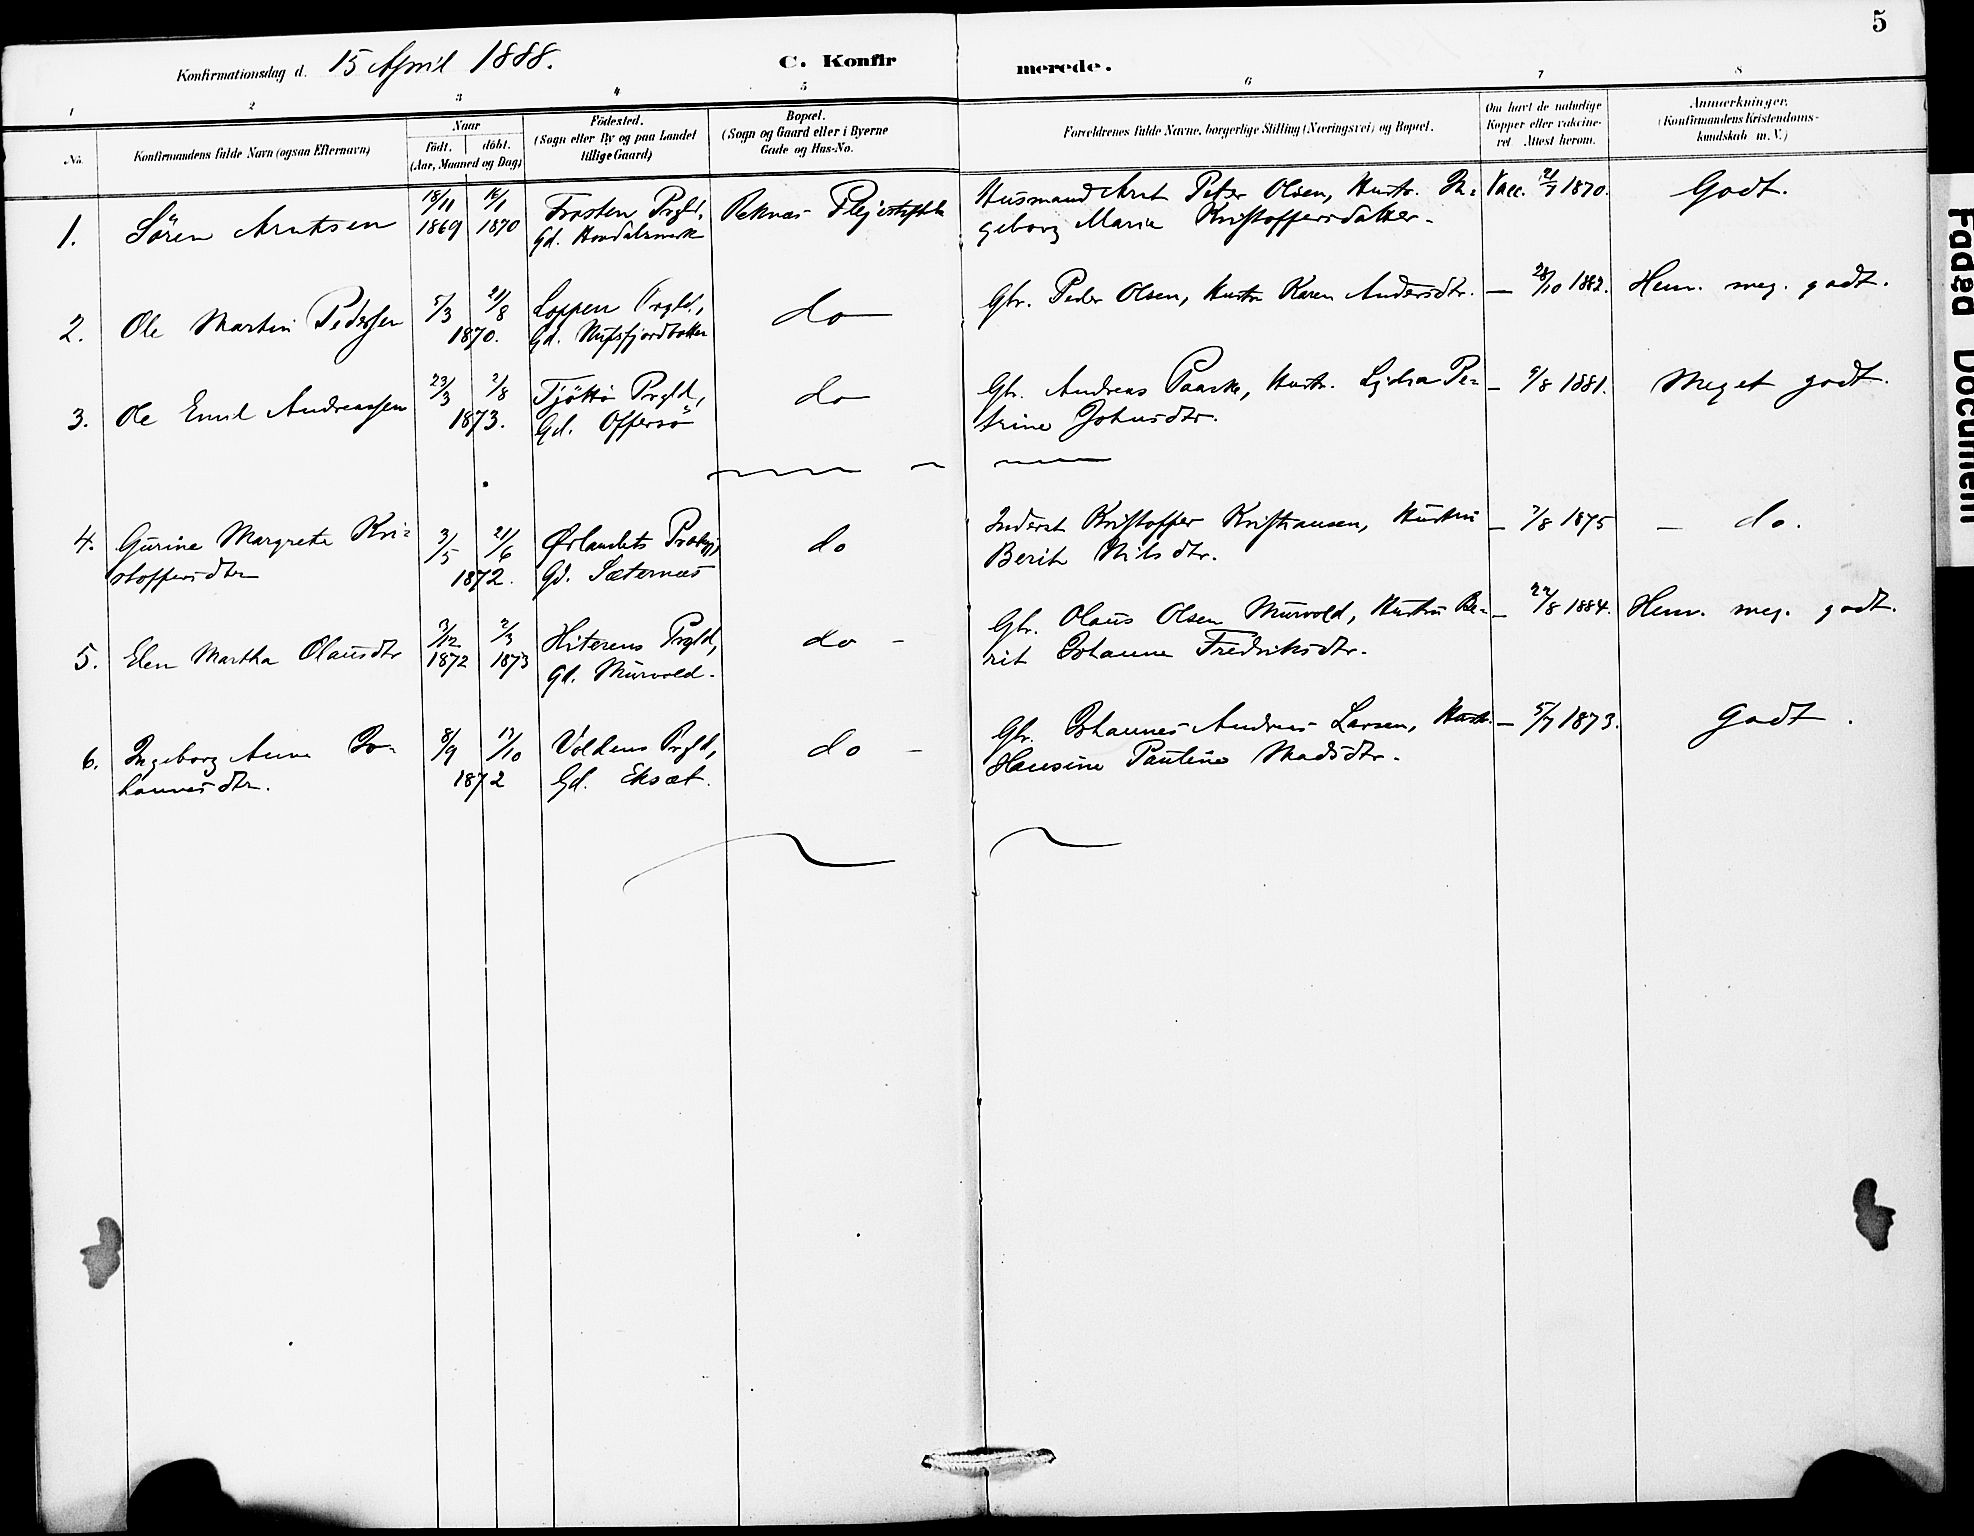 5
Konfirmationsdag d. 15 April 1888.
C. Konfirmerede.
1 2 3 4 5 6 7 8
No.
Konfirmandens fulde Navn (ogsaa Efternavn)
Naar
født. døbt.
(Aar, Maaned og Dag)
Födested.
(Sogn eller By og paa Landet
tillige Gaard)
Bopæl.
(Sogn og Gaard eller i Byerne
Gade og Hus-No.
Forældrenes fulde Navne, borgerlige Stilling (Næringsvei) og Bopæl.
Om havt de naturlige
Kopper eller vakcine-
ret. Attest herom.
Anmærkninger.
(Konfirmandens Kristendoms-
kundskab m. V.)
1. Sören Arntsen
18/11 1869
16/1 1870
Frosten Prgld,
Gd.
Reknes Plejestiftelse
Husmand Arnt Peter Olsen, Hustr. In-
geborg Maria Kristoffersdatter.
Vacc. 21/7 1870.
Godt.
2. Ole Martin Pederssen
5/3 21/8
1870.
Loppen Prgld,
Gd. Nufsfjordbotten
do
Gbr. Peder Olsen, Hustr Karen Andersdtr.
— 28/10 1882.
Hen. meg. godt.
3. Ole Emil Andreassen
23/3 2/8
1873.
Tjöttö Prgld,
Gd. Offersö
do
Gbr. Andreas Paaske, Hustr. Lydia Pe-
trine Johnsdtr.
— 9/8 1881.
Meget godt.
4. Gurine Margrete Kri-
stoffersdtr
3/5 21/6
1872.
Ørlandets Præstgj,
Gd. Sæternes
do
Inderst Kristoffer Kristiansen, Hustru
Berit Nilsdtr.
— 7/8 1875
— do.
5. Elen Martha Olausdtr
3/12 1872
2/3 1873
Hiterens Prgld,
Gd. Murvold.
do -
Gbr. Olaus Olsen Murvold, Hustru Be-
rit Johanne Fredriksdtr.
— 22/8 1884.
Hen. meg. godt.
6. Ingeborg Anne Jo-
hannesdtr.
8/9 17/10
1872
Voldens Prgld,
Gd. Eksæt.
do -
Gbr. Johannes Andreas Larsen, Hustr.
Hansine Pauline Madsdtr.
— 5/7 1873.
Godt.
Faded Document